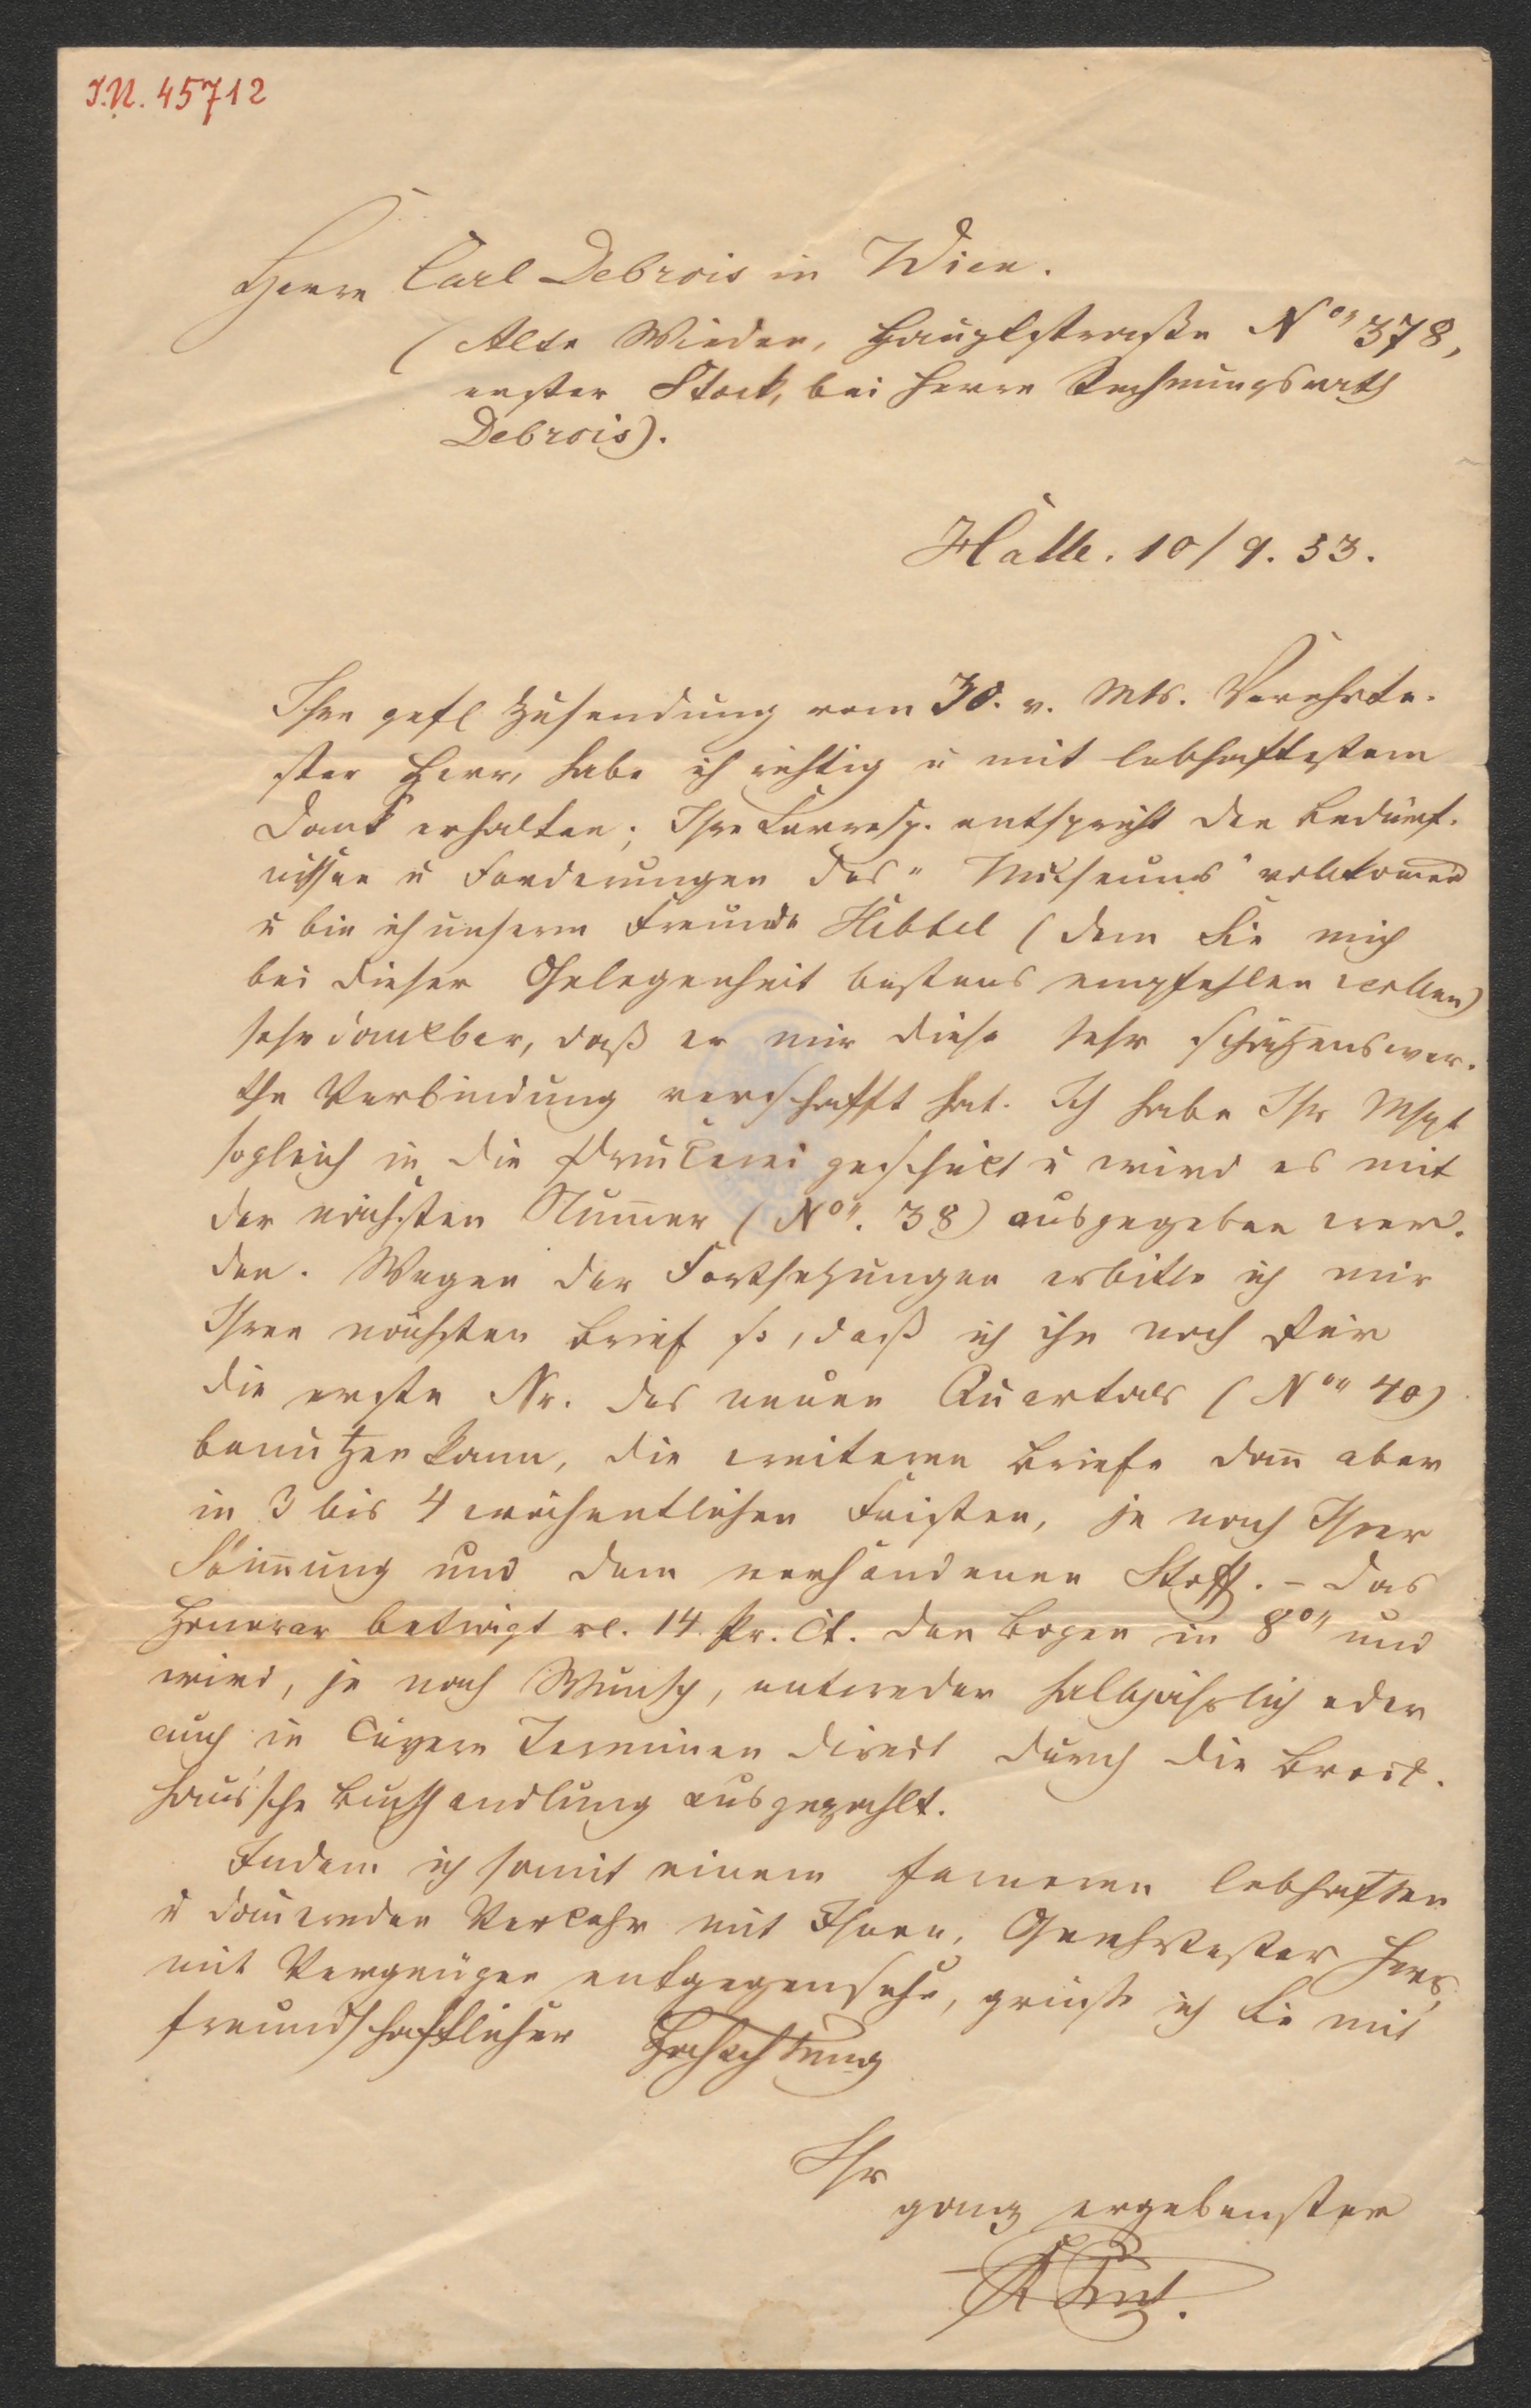 I.N. 45712
Herrn Carl Debrois in Wien.
(Alte Wieden, Hauptstraße N° 378,
erster Stock, bei Herrn Rechnungsrath
Debrois).
Halle. 10/9. 53.
Ihre gefl Zusendung vom 30. v. Mts. Verehrte-
ster Herr, habe ich richtig u mit lebhaftestem
Dank erhalten; Ihre Corresp. entspricht den Bedürf-
nissen u Forderungen des "Museums" vollkommen
u bin ich unserm Freunde Hebbel (dem Sie mich
bei dieser Gelegenheit bestens empfehlen wollen)
sehr dankbar, daß er mir diese sehr schätzenswer-
the Verbindung verschafft hat. Ich habe Ihr Mspt
sogleich in die Druckerei geschickt u wird es mit
der nächsten Nummer (N°. 38) ausgegeben wer-
den. Wegen der Fortsetzungen erbitte ich mir
Ihren nächsten Brief so, daß ich ihn noch für
die erste Nr. des neuen Quartals (N° 40)
benutzen kann, die weiteren Briefe dann aber
in 3 bis 4 wöchentlichen Fristen, je nach Ihrer
Stimmung und dem vorhandenen Stoff. - Das
Honorar beträgt rl. 14 Pr. Ct. den Bogen in 8° und
wird, je nach Wunsch, entweder halbjährlich oder
auch in kürzern Terminen direct durch die Breit-
haus'sche Buchhandlung ausgezahlt.
Indem ich somit einem ferneren lebhaften
u dauernden Verkehr mit Ihnen, Geehrtester Herr,
mit Vergnügen entgegensehe, grüße ich Sie mit
freundschaftlicher Hochachtung
Ihr
ganz ergebenster